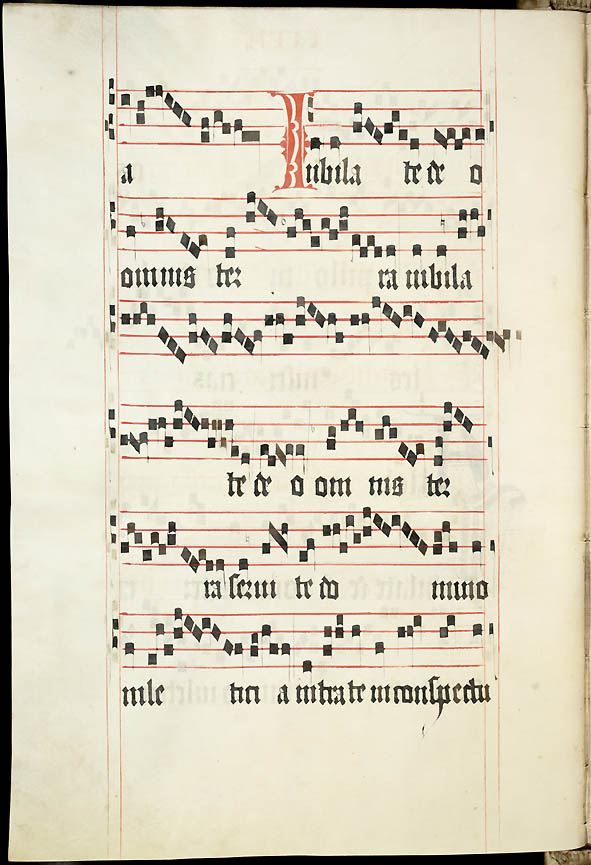 a Iubila te de o
omnis ter ra iubila
te de o om nis ter
ra serui te do mino
in le tici a intrate in conspectu